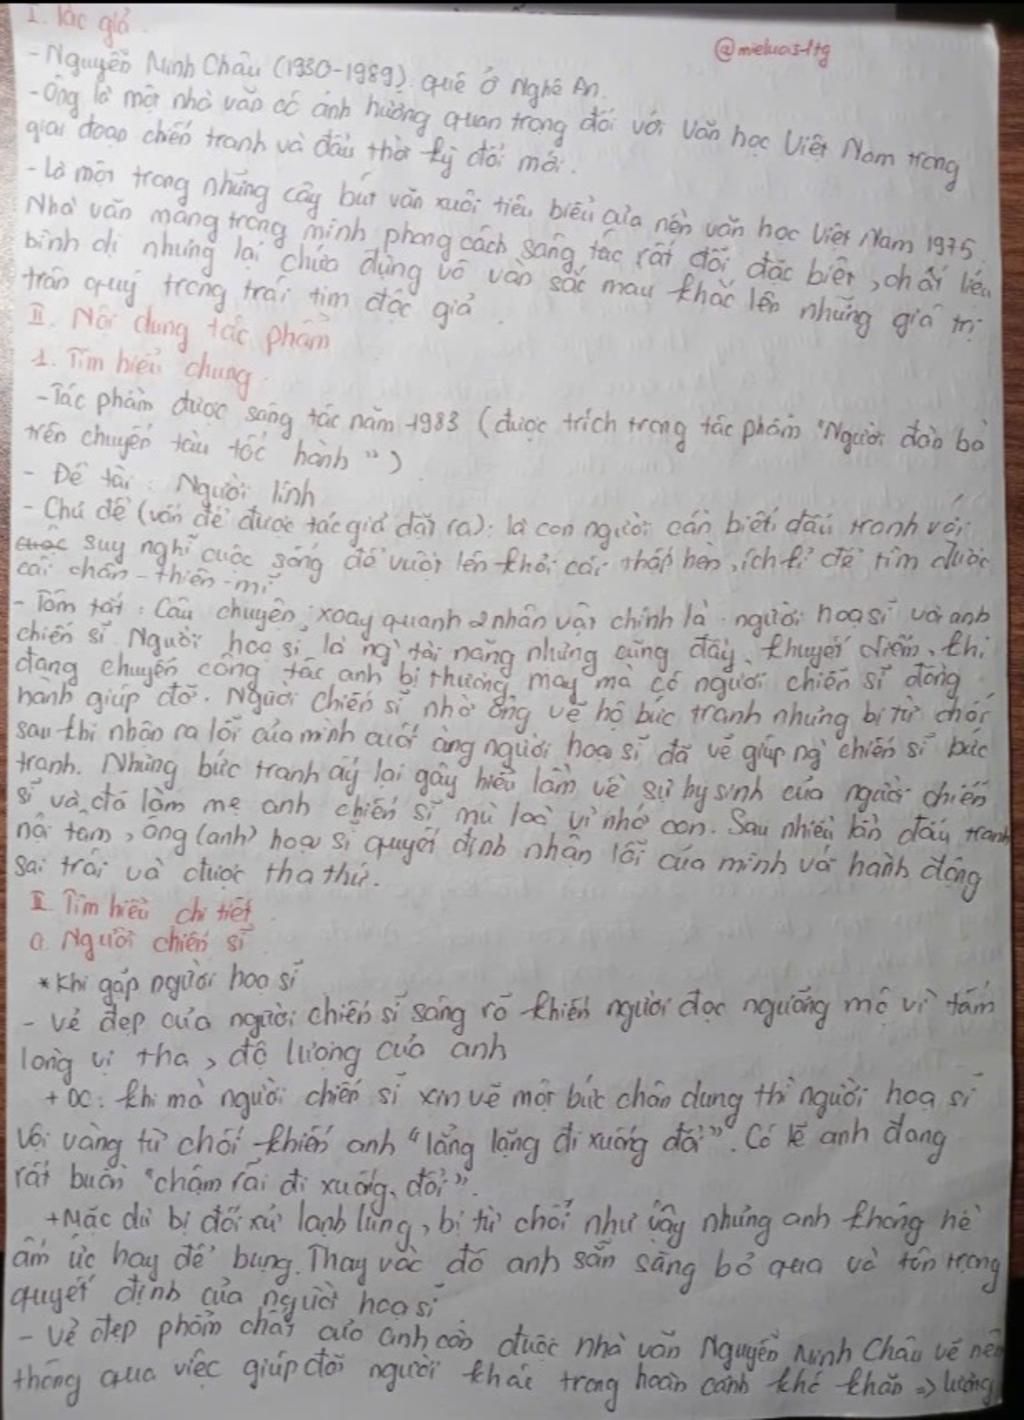 I. Tác giả.
@mieluas-ltg
- Nguyễn Minh Châu (1930-1989) quê ở Nghệ An.
- Ông là một nhà văn có ảnh hưởng quan trọng đối với văn học Việt Nam trong
giai đoạn chiến tranh và đầu thời kỳ đổi mới.
- Là một trong những cây bút văn xuôi tiêu biểu của nền văn học Việt Nam 1975.
Nhà văn mang trong mình phong cách sáng tác rất đỗi đặc biệt, chất liệu
bình dị nhưng lại chứa đựng vô vàn sắc màu khắc lên những giá trị
trân quý trong trái tim độc giả.
II. Nội dung tác phẩm
1. Tìm hiểu chung.
- Tác phẩm được sáng tác năm 1983 (được trích trong tác phẩm "Người đàn bà
trên chuyến tàu tốc hành")
- Đề tài: Người lính
- Chủ đề (vấn đề được tác giả đặt ra): là con người cần biết đấu tranh với
suy nghĩ cuộc sống để vượt lên khỏi cái thấp hèn, ích kỉ để tìm được
cái chân - thiện - mĩ
- Tóm tắt: Câu chuyện xoay quanh 2 nhân vật chính là người hoạ sĩ và anh
chiến sĩ. Người hoạ sĩ là ng' tài năng nhưng cũng đầy khuyết điểm, khi
đang chuyến công tác anh bị thương, may mà có người chiến sĩ đồng
hành giúp đỡ. Người chiến sĩ nhờ ông vẽ hộ bức tranh nhưng bị từ chối
sau khi nhận ra lỗi của mình cuối cùng người hoạ sĩ đã vẽ giúp ng' chiến sĩ bức
tranh. Nhưng bức tranh ấy lại gây hiểu lầm về sự hy sinh của người chiến
sĩ và đã làm mẹ anh chiến sĩ mù loà vì nhớ con. Sau nhiều lần đấu tranh
nội tâm, ông (anh) hoạ sĩ quyết định nhận lỗi của mình và hành động
sai trái và được tha thứ.
II. Tìm hiểu chi tiết
a. Người chiến sĩ
* Khi gặp người hoạ sĩ
- Vẻ đẹp của người chiến sĩ sáng rõ khiến người đọc ngưỡng mộ vì tấm
lòng vị tha, độ lượng của anh
+ DC: khi mà người chiến sĩ xin vẽ một bức chân dung thì người hoạ sĩ
vội vàng từ chối khiến anh "lẳng lặng đi xuống đồi". Có lẽ anh đang
rất buồn "chậm rãi đi xuống đồi".
+ Mặc dù bị đối xử lạnh lùng, bị từ chối như vậy nhưng anh không hề
ấm ức hay để bụng. Thay vào đó anh sẵn sàng bỏ qua và tôn trọng
quyết định của người hoạ sĩ
- Vẻ đẹp phẩm chất của anh còn được nhà văn Nguyễn Minh Châu vẽ nên
thông qua việc giúp đỡ người khác trong hoàn cảnh khó khăn => lương